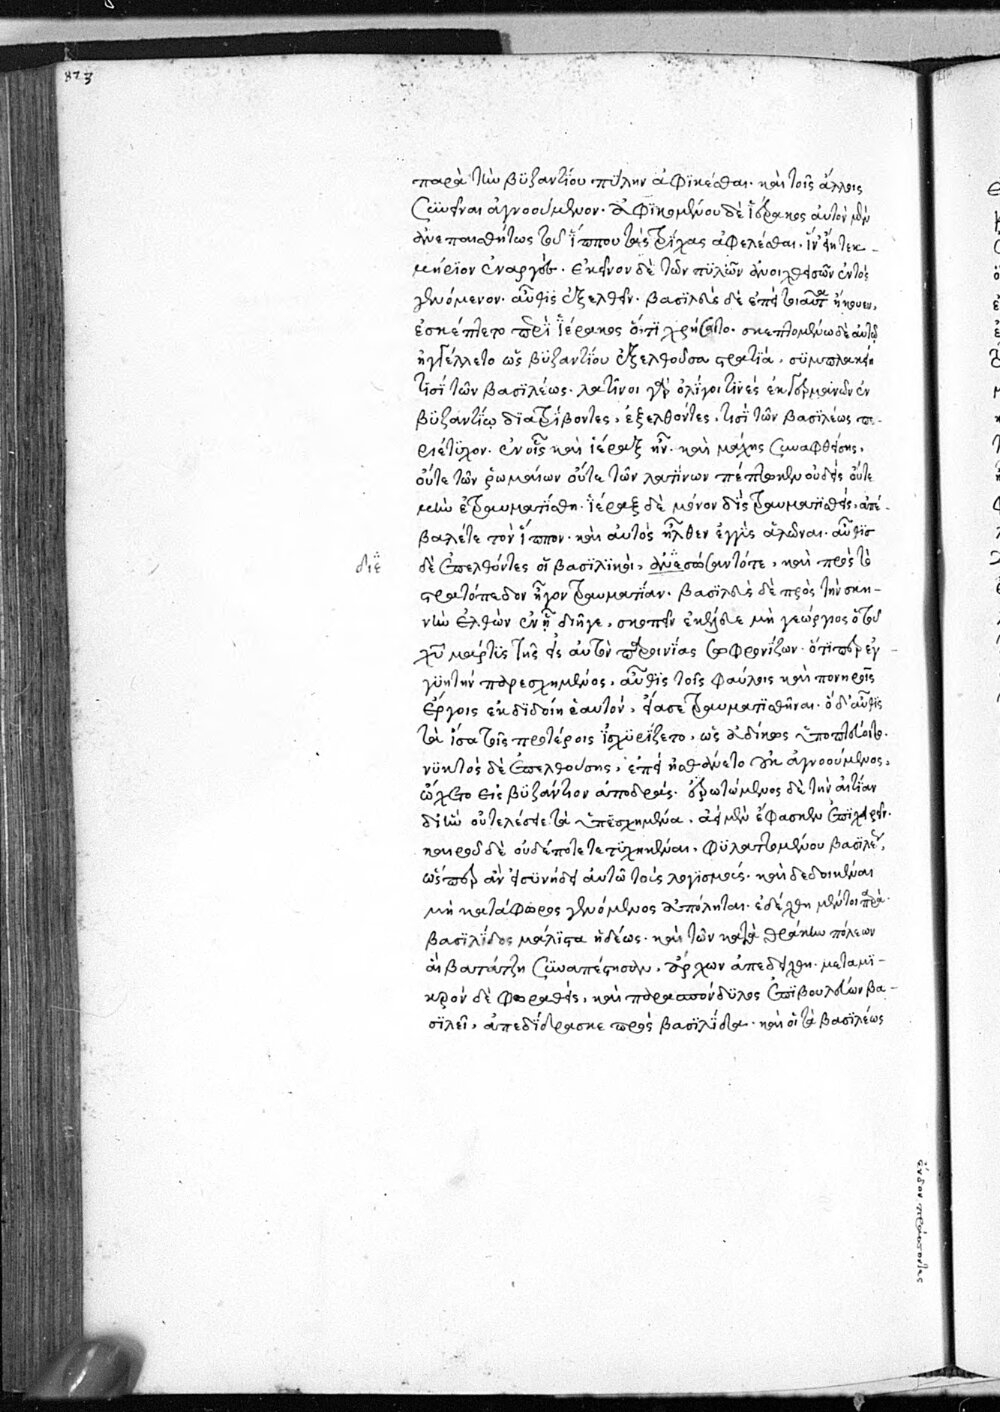 873
παρὰ τὴν βυζαντίου πύλην ἀφικέσθαι. καὶ τοῖς ἄλλοις
συνεῖναι ἀγνοούμενον. ἀφικομένου δὲ ἵέρακος αὐτὸν μὲν
ἀνεπαισθήτως τοῦ ἵππου τὰς τρίχας ἀφελέσθαι. ἵν' εἴη τεκ-
μήριον ἐναργὲς. ἐκεῖνον δὲ τῶν πυλῶν ἀνοιχθεισῶν ἐντὸς
γενόμενον. αὖθις ἐξελθεῖν. βασιλεὺς δὲ ἐπεὶ τοιαῦτα ἤκουεν,
ἐσκέπτετο περὶ ἱέρακος ὅ,τι χρήσαιτο. σκεπτομένω δὲ αὐτῶ
ἠγγέλλετο ὡς βυζαντίου ἐξελθοῦσα στρατιά, συμπλακείη
τισὶ τῶν βασιλέως. λατῖνοι γὰρ ὀλίγοι τινὲς ἐκ γερμανῶν ἐν
βυζαντίῳ διατρίβοντες, ἐξελθόντες, τισὶ τῶν βασιλέως πε-
ριέτυχον. ἐν οἷς καὶ ἱέραξ ἦν. καὶ μάχης συναφθείσης,
οὔτε τῶν ῥωμαίων οὔτε τῶν λατίνων πέπτωκεν οὐδεὶς οὔτε
μὴν ἐτραυματίσθη. ἱέραξ δὲ μόνον δὶς τραυματισθεὶς, ἀπέ-
βαλέτε τὸν ἵππον. καὶ αὐτὸς ἦλθεν ἐγγὺς ἁλῶναι. αὖθις
διέ
δὲ ἐπελθόντες οἱ βασιλικοὶ, ἀνέσωσαντότε, καὶ πρὸς τὸ
στρατόπεδον ἦγον τραυματίαν. βασιλεὺς δὲ πρὸς τὴν σκη-
νὴν ἐλθὼν ἐν ᾗ διῆγε, σκοπεῖν ἐκέλευε μὴ γεώργιος ὁ τοῦ
χυ μάρτυς τῆς εἰς αὐτὸν παροινίας σωφρονίζων. ὅτι περ ἐγ-
γυητὴν παρεσχημένος, αὖθις τοῖς φαύλοις καὶ πονηροῖς
ἔργοις ἐκδιδοίη ἑαυτὸν, εἴασε τραυματισθῆναι. ὁ δ' αὖθις
τὰ ἴσα τοῖς προτέροις ἰσχυρίζετο, ὡς ἀδίκως ὑποπτεύοιτο.
νυκτὸς δὲ ἐπελθούσης, ἐπεὶ ἠσθάνετο οὐκ ἀγνοούμενος,
ᾤχετο εἰς βυζάντιον ἀποδράς. ἐρωτώμενος δὲ τὴν αἰτίαν
δι' ἣν οὐ τελέσειε τὰ ὑπεσχημένα, ἀεὶ μὲν ἔφασκεν ἐπιχειρεῖν.
καιροῦ δὲ οὐδέποτε τετυχηκέναι. φυλαττομένου βασιλέως,
ὥσπερ ἂν εἰ συνήδει αὐτῶ τοὺς λογισμούς. καὶ δεδοικέναι
μὴ κατάφωρος γενόμενος ἀπόληται. ἐδέχθη μέντοι παρὰ
βασιλίδος μάλιστα ἡδέως. καὶ τῶν κατὰ θράκην πόλεων
αἳ βατάτζη συναπέστησαν, ἄρχων ἀπεδείχθη. μεταμι-
κρὸν δὲ φωραθεὶς, καὶ πάρα σπόνδυλος ἐπιβουλεύων βα-
σιλεῖ, ἀπεδίδρασκε πρὸς βασιλίδα. καὶ οἱ τὰ βασιλέως
ἔνδον πράττοντες